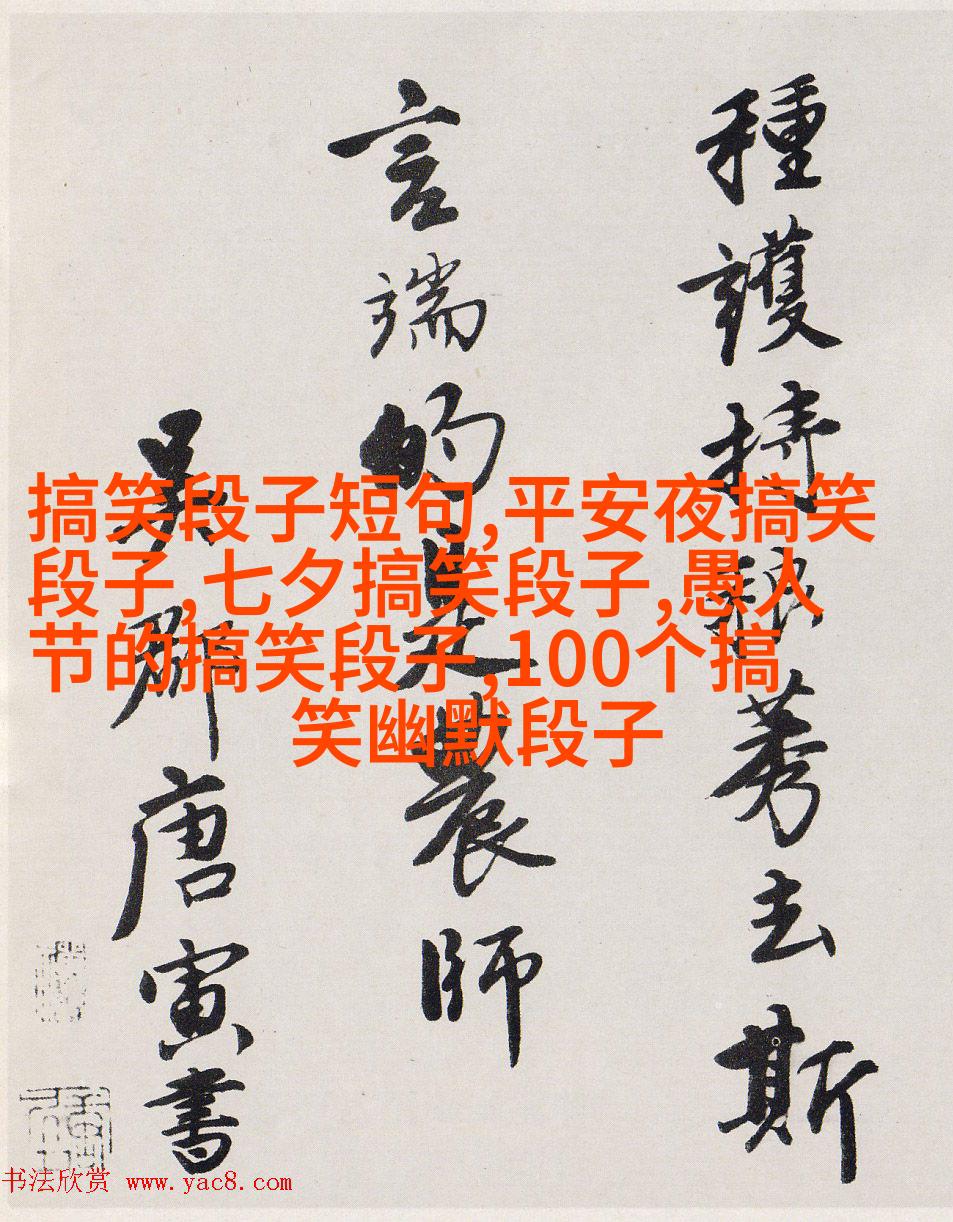 種護持稂莠去斯
言端的是農師
吳郡唐寅書
搞笑段子短句,平安夜搞笑
段子,七夕搞笑段子,愚人
节的搞笑段子,100个搞
笑幽默段子
书法欣赏 www.yac8.com